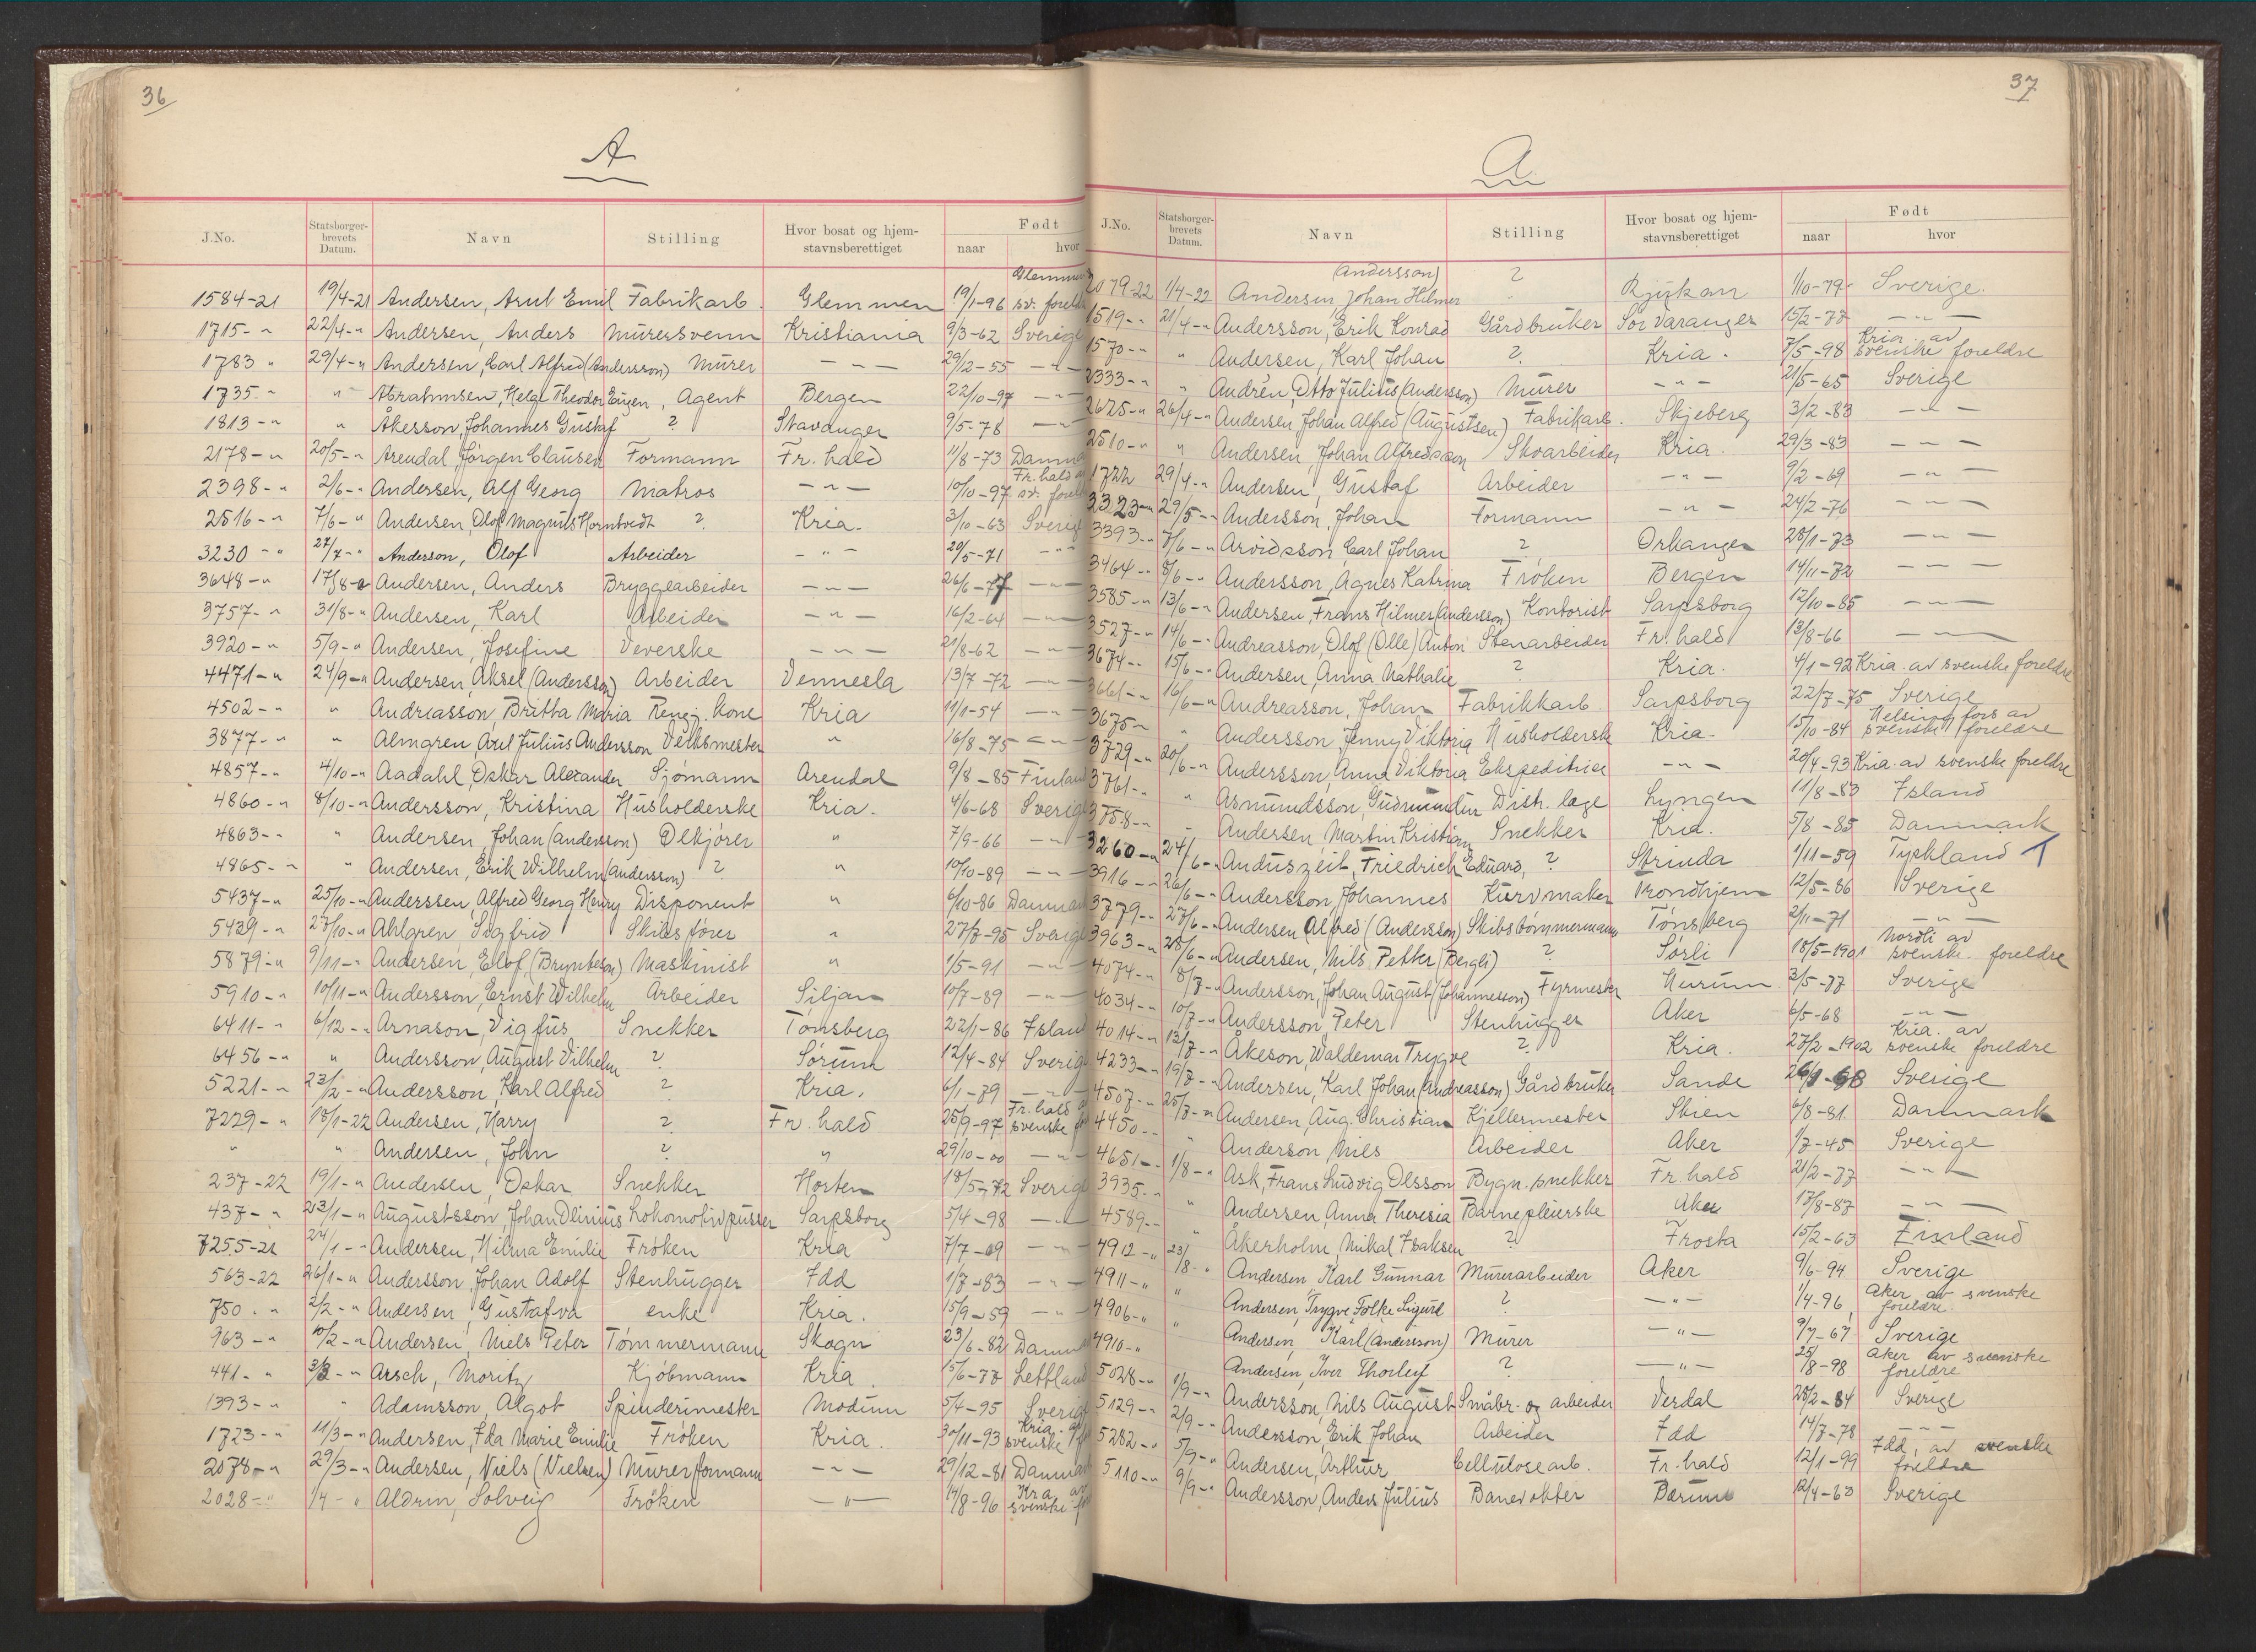 36
A
J.No. Statsborger-brevets Datum. Navn Stilling Hvor bosat og hjem-stavnsberettiget Født naar hvor
1584-21 19/4-21 Andersen, Arut Emil Fabrikarb. Glemmen 19/1-96 Glemmen sv. foreld
1715-" 22/4-" Andersen, Anders Murersvenn Kristiania 9/3-62 Sverige
1783 " 29/4-" Andersen, Carl Alfred (Andersson) Murer -"- 29/12-55 -"-
1735-" " Abrahmsen, Helge Theodor Eugen, Agent Bergen 22/10-97 -"-
1813-" " Åkesson, Johannes Gustaf ? Stavanger 9/5-78 -"-
2178-" 20/5-" Arendal Jörgen Clausen Formann Fr.hald 11/8-73 Danma
2398-" 2/6-" Andersen, Alf Georg Matros -"- 10/10-97 Fr.hald a sv. forel
2516-" 7/6-" Andersen, Olof Magnus Horntvedt ? Kria. 3/10-63 Sverig
3230-" 27/7-" Anderson, Olof Arbeider -"- 20/5-71 -"-
3648-" 17/8-" Andersen, Anders Bryggearbeider -"- 26/6-77 -"-
3757-" 31/8-" Andersen, Karl Arbeider -"- 16/2-64 -"-
3920-" 5/9-" Andersen, Josefine Veverske -"- 21/8-62 -"-
4471-" 24/9-" Andersen, Aksel (Andersson) Arbeider Vennesla 13/7-72 -"-
4502-" " Andreasson, Britta Maria Rengj. kone Kria 11/1-54 -"-
3877-" " Almgren, Axel Julius Andersson Verksmester " 16/8-75 -"-
4857-" 4/10-" Aadahl, Oskar Alexander Sjømann Arendal 9/8-85 Finland
4860-" 8/10-" Andersson, Kristina Husholderske Kria. 4/6-68 Sverige
4863-" " Andersen, Johan (Andersson) Ølkjører " 7/9-66 -"-
4865-" " Andersen, Erik Wilhelm (Andersson) ? " 10/10-89 -"-
5437-" 25/10-" Anderssen, Alfred Georg Henry Disponent " 6/10-86 Danmar
5429-" 27/10-" Ahlgren, Sigfrid Skibsfører " 27/7-95 Sverige
5879-" 9/11-" Andersen, Elof (Brynteson) Maskinist " 1/5-91 -"-
5910-" 10/11-" Andersson, Ernst Wilhelm Arbeider Siljan 10/7-89 -"-
6411-" 6/12-" Arnason, Vigfus Snekker Tønsberg 22/1-86 Island
6456-" " Andersson, August Vilhelm ? Sørum 12/4-84 Sverig
5221-" 23/12-" Andersson, Karl Alfred ? Kria. 6/1-89 -"-
7229-" 18/1-22 Andersen, Harry ? Fr.hald 25/9-97 Fr.hald a svenske f
" " Andersen, John ? " 29/10-00 -"-
237-22 19/1-" Andersen, Oskar Snekker Horten 18/5-72 Sverige
437-" 23/1-" Augustsson, Johan Dlinius Lokomotivpusser Sarpsborg 5/4-98 -"-
7255-21 24/1-" Andersen, Hilma Emilie Frøken Kria 7/7-09 -"-
563-22 26/1-" Andersson, Johan Adolf Stenhugger Idd 1/7-83 -"-
750-" 2/2-" Andersen, Gustafva enke Kria. 15/9-59 -"-
963-" 10/2-" Andersen, Niels Peter Tømmermann Skogn 23/6-82 Danm
441-" 3/3-" Arsch, Moritz Kjøbmann Kria 15/6-77 Lettland
1393-" " Adamsson, Algot Spinderimester Modum 5/4-95 Sverig
1723-" 11/3-" Andersen, Ida Marie Emilie Frøken Kria. 30/11-93 Kria. av svenske f
2078-" 29/3-" Andersen, Niels (Nielsen) Murerformann -"- 29/12-81 Danmar
2028-" 1/4-" Aldrin, Solveig Frøken -"- 14/8-96 Kra. av svenske fo
37
A
J.No. Statsborger-brevets Datum. Navn Stilling Hvor bosat og hjem-stavnsberettiget Født naar hvor
2079-22 1/4-22 Andersen, Johan Hilmer (Andersson) ? Rjukan 1/10-79 Sverige.
1519-" 21/4-" Andersson, Erik Konrad Gårdbruker Sør Varanger 15/2-77 -"-
1570-" " Andersen, Karl Johan ? Kria. 7/5-98 Kria. av svenske foreldre
2333-" " Andrén, Otto Julius (Andersson) Murer -"- 21/5-65 Sverige
2625-" 26/4-" Andersen, Johan Alfred (Augustsen) Fabrikarb. Skjeberg 3/2-83 -"-
2510-" " Andersen, Johan Alfredsson Skoarbeider Kria. 29/3-83 -"-
1722 29/4-" Andersen, Gustaf Arbeider -"- 9/2-69 -"-
2323-" 29/5-" Andersson, Johan Formann -"- 24/2-76 -"-
3393-" 7/6-" Arvidsson, Carl Johan ? Orkanger 28/1-73 -"-
3464-" 8/6-" Andersson, Agnes Katrina Frøken Bergen 14/11-72 -"-
3585-" 13/6-" Andersen, Frans Hilmer (Andersson) Kontorist Sarpsborg 12/10-85 -"-
3527-" 14/6-" Andreasson, Olof (Olle) Anton Stenarbeider Fr.hald 13/8-66 -"-
3674-" 15/6-" Andersen, Anna Nathalie ? Kria. 4/1-92 Kria. av svenske foreldre
3661-" 16/6-" Andreasson, Johan Fabrikkarb. Sarpsborg 22/7-75 Sverige
3675-" " Andersson, Jenny Viktoria Husholdersk Kria. 15/10-84 Helsingfors av svenske foreldre
3729-" 20/6-" Andersson, Anna Viktoria Ekspeditrice -"- 20/4-93 Kria. av svenske foreldre
3761-" " Asmundsson, Gudmundur Distr. læge Lyngen 11/8-83 Island
3758-" " Andersen, Martin Kristian Snekker Kria. 5/8-85 Danmark
3260-" 24/6-" Anduszeit, Friedrich Eduard, ? Strinda 1/11-59 Tyskland T
3916-" 26/6-" Andersson, Johannes Kurvmaker Trondhjem 12/5-86 Sverige
3779-" 27/6-" Andersen Alfred (Andersson) Skibstømmermann Tønsberg 2/11-71 -"-
3963-" 28/6-" Andersen, Nils Petter (Bergli) ? Sørli 18/5-1901 Nordli av svenske foreldre
4074-" 8/7-" Andersson, Johan August (Johannesson) Fyrmester Hurum 3/5-77 Sverige
4034-" 10/7-" Andersson, Peter Stenhugger Aker 6/5-68 -"-
4014-" 13/7-" Åkeson, Waldemar Trygve ? Kria. 27/2-1902 Kria. av svenske foreldre
4233-" 19/7-" Andersen, Karl Johan (Andreasson) Gårdbruker Sande Sverige
4507-" 25/7-" Andersen, Aug. Christian Kjellermester Skien 6/8-81 Danmark
4450-" " Anderson, Nils Arbeider Aker 1/7-45 Sverige
4651-" 1/8-" Ask, Frans Ludvig Olsson Bygn.snekker Fr.hald 21/2-77 -"-
3935-" " Andersen, Anna Theresia Barnepleierske Aker 17/8-87 -"-
4589-" " Åkerholm, Mikal Isaksen ? Frosta 15/2-63 Finland
4912-" 23/8-" Andersen, Karl Gunnar Murerarbeider Aker 9/6-94 Sverige
4911-" " Andersen, Trygve Folke Sigurd ? -"- 1/4-96 Aker av svenske foreldre.
4906-" " Andersen, Karl (Andersson) Murer -"- 9/7-67 Sverige
4910-" Andersen, Iver Thorleif ? -"- 25/8-98 Aker av svenske foreldre
5028-" 1/9-" Andersson, Nils August Småbr. og arbeider Verdal 28/2-84 Sverige
5129-" 2/9-" Andersson, Erik Johan Arbeider Idd 14/7-78 -"-
5282-" 5/9-" Andersen, Arthur Cellulosearb. Fr.hald 12/1-99 Idd, av svenske foreldre
5110-" 9/9-" Andersson, Anders Julius Banevokter Bærum 12/4-63 Sverige